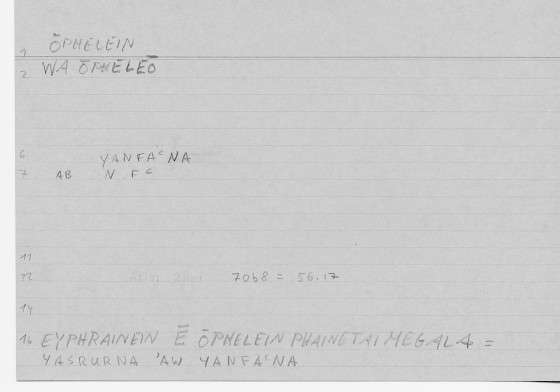 1 ŌPHELEIN
2 WA ŌPHELEŌ
6 YANFAᶜNA
7 AB N F ᶜ
11
12 70b8 = 56.17
14
16 EYPHRAINEIN Ē ŌPHELEIN PHAINETAI MEGALA =
YASRURNA 'AW YANFAᶜNA